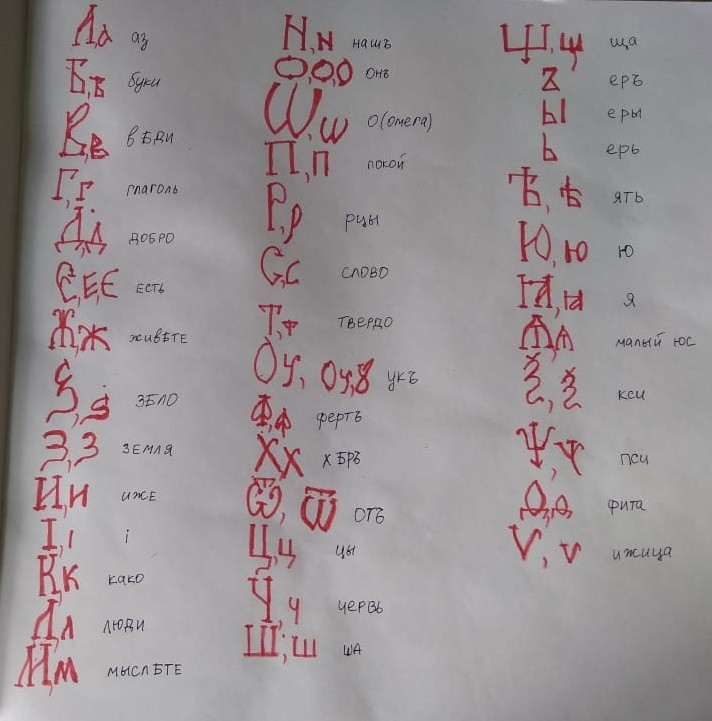 А,а аз
Б,б буки
В,в вѢди
Г,г глаголь
Д,д добро
Є,Е,Є есть
Ж,ж живѢте
Ѕ,ѕ зѢло
З,З земля
И,и иже
І,і і
К,к како
Л,л люди
М,м мыслѢте
Н,н нашъ
О,О,О онъ
Ѡ,ѡ о(омега)
П,п покой
Р,р рцы
С,с слово
Т,т твердо
Оу, Оу,Ȣ укъ
Ф,ф фертъ
Х,х хѢръ
Ѿ, Ѿ отъ
Ц,ц цы
Ч,ч червь
Ш,ш ша
Щ,щ ща
Ъ еръ
Ы еры
Ь ерь
Ѣ, ѣ ять
Ю,ю ю
Ꙗ,ꙗ я
Ѧ,ѧ малый юс
Ѯ,ѯ кси
Ѱ,ѱ пси
Ѳ,ѳ фита
Ѵ,ѵ ижица